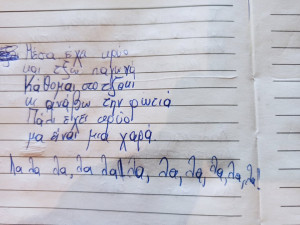 Μέσα έχει κρύο
και έξω παγωνιά
Κάθομαι στο τζάκι
κι ανάβω την φωτιά
Πάλι έχει κρύο
μα είναι μια χαρά.
Λα λα λα, λα λα! λα, λα, λα, λα, λα, λα!